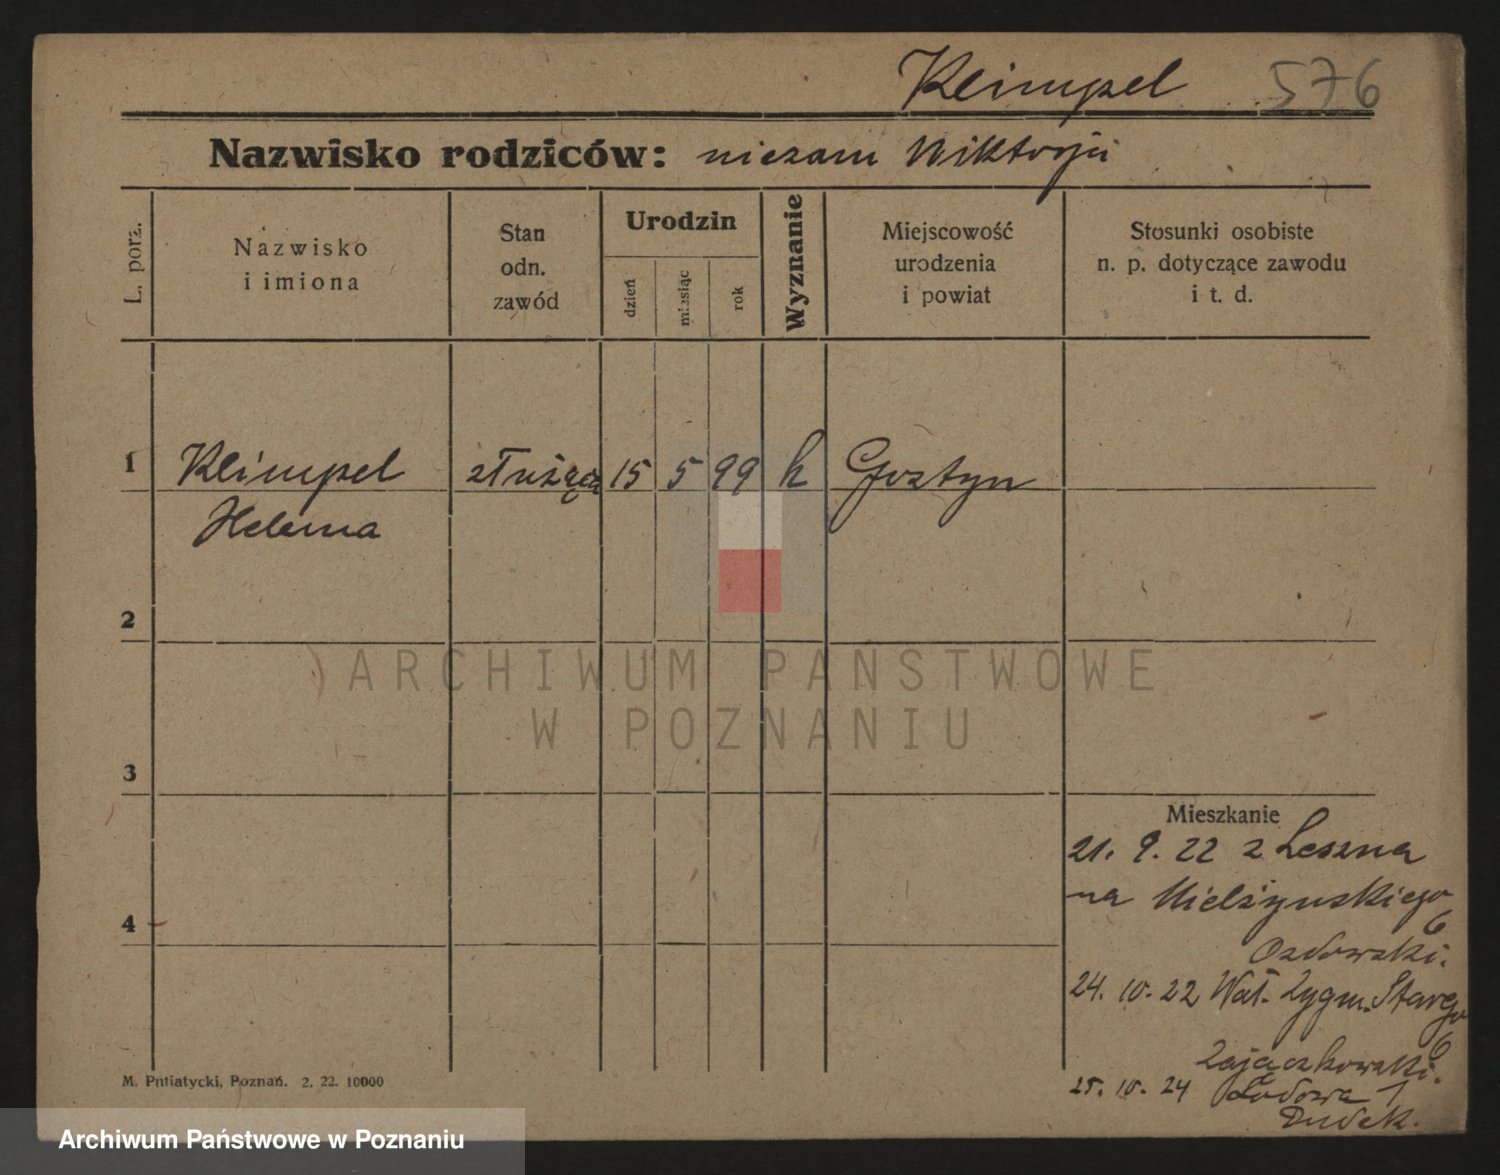 Klimpel 576
Nazwisko rodziców: niezam Wiktorja
L. porz.
Nazwisko
i imiona
Stan
odn.
zawód
Urodzin
dzień
miesiąc
rok
Wyznanie
Miejscowość
urodzenia
i powiat
Stosunki osobiste
n. p. dotyczące zawodu
i t. d.
1 Klimpel służąca 15 5 99 k Gostyn
Helena
2
ARCHIWUM PAŃSTWOWE
W POZNANIU
3
Mieszkanie
21. 9. 22 z Leszna
na Mielżynskiego
6
4
24. 10. 22 Wał. Zygm. Starego
6
Zajączkowski.
25. 10. 24 Łodowa 1
Dudek.
M. Putiatycki, Poznań. 2. 22. 10000
Archiwum Państwowe w Poznaniu